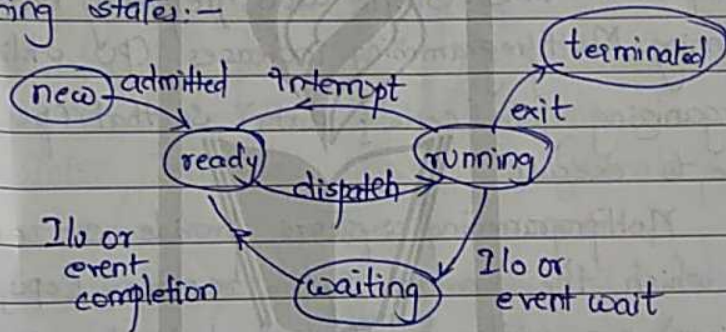 ing states:-
terminated
new admitted Interrupt
exit
ready running
dispatch
I/o or
event
completion
waiting
I/o or
event wait